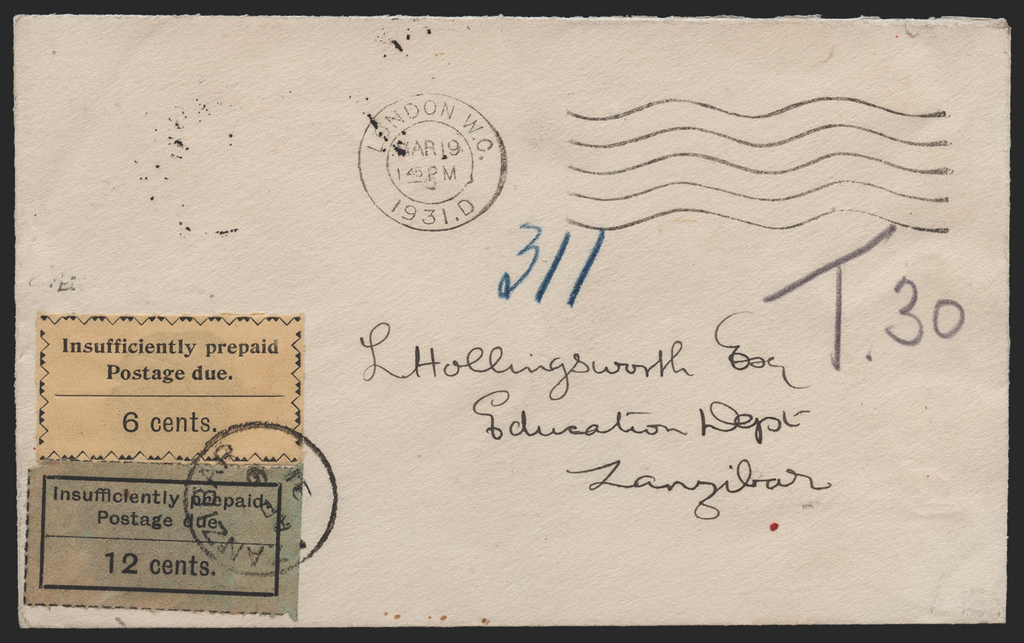 LONDON W.C.
MAR 19
1 45 PM
1931.D
311
T. 30
L Hollingsworth Esq
Education Dept
Zanzibar
Insufficiently prepaid
Postage due.
6 cents.
Insufficiently prepaid
Postage due.
12 cents.
ZANZIBAR